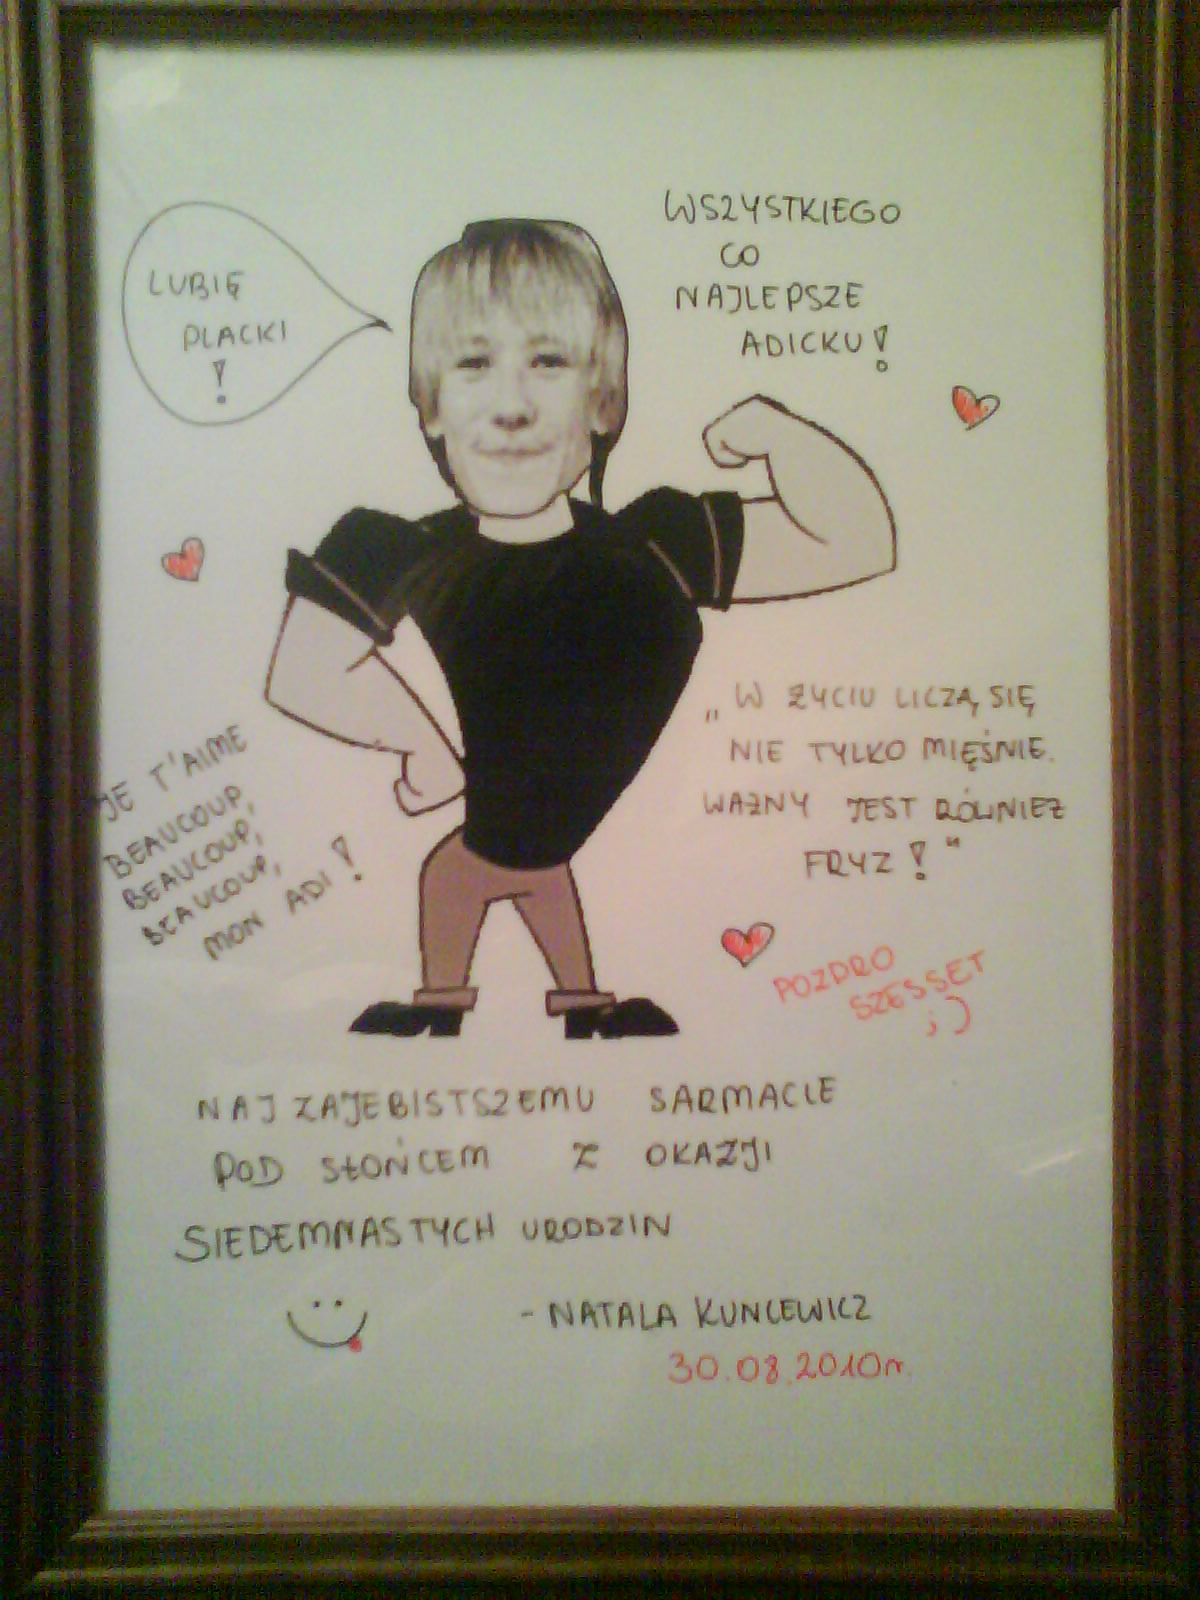 LUBIĘ
PLACKI
!
WSZYSTKIEGO
CO
NAJLEPSZE
ADICKU!
„W ŻYCIU LICZĄ SIĘ
NIE TYLKO MIĘŚNIE.
WAŻNY JEST RÓWNIEŻ
FRYZ!"
JE T'AIME
BEAUCOUP,
BEAUCOUP,
BEAUCOUP,
MON ADI!
POZDRO
SZESSET
;)
NAJZAJEBISTSZEMU SARMACIE
POD SŁOŃCEM Z OKAZJI
SIEDEMNASTYCH URODZIN
- NATALA KUNCEWICZ
30.08.2010r.